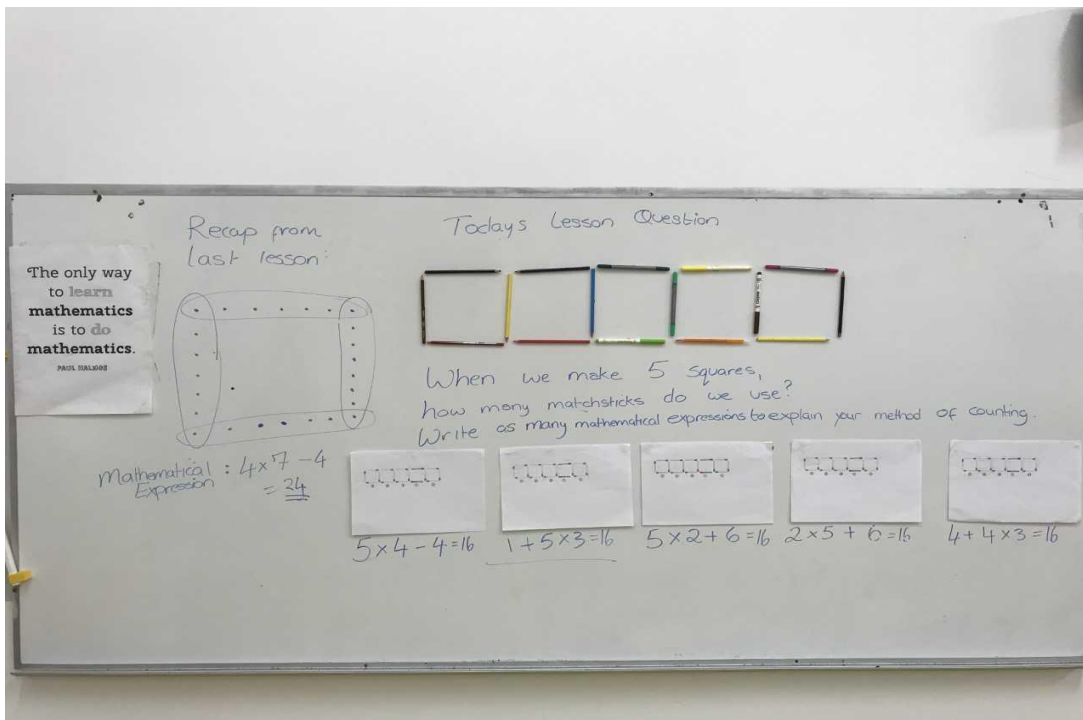 The only way
to learn
mathematics
is to do
mathematics.
PAUL HALMOS
Recap from
last lesson:
Mathematical : 4×7-4
Expression
= 24
Todays Lesson Question
When we make 5 squares,
how many matchsticks do we use?
Write as many mathematical expressions to explain your method of counting.
5×4-4=16
1+5×3=16
5×2+6=16
2×5+6=16
4+4×3=16